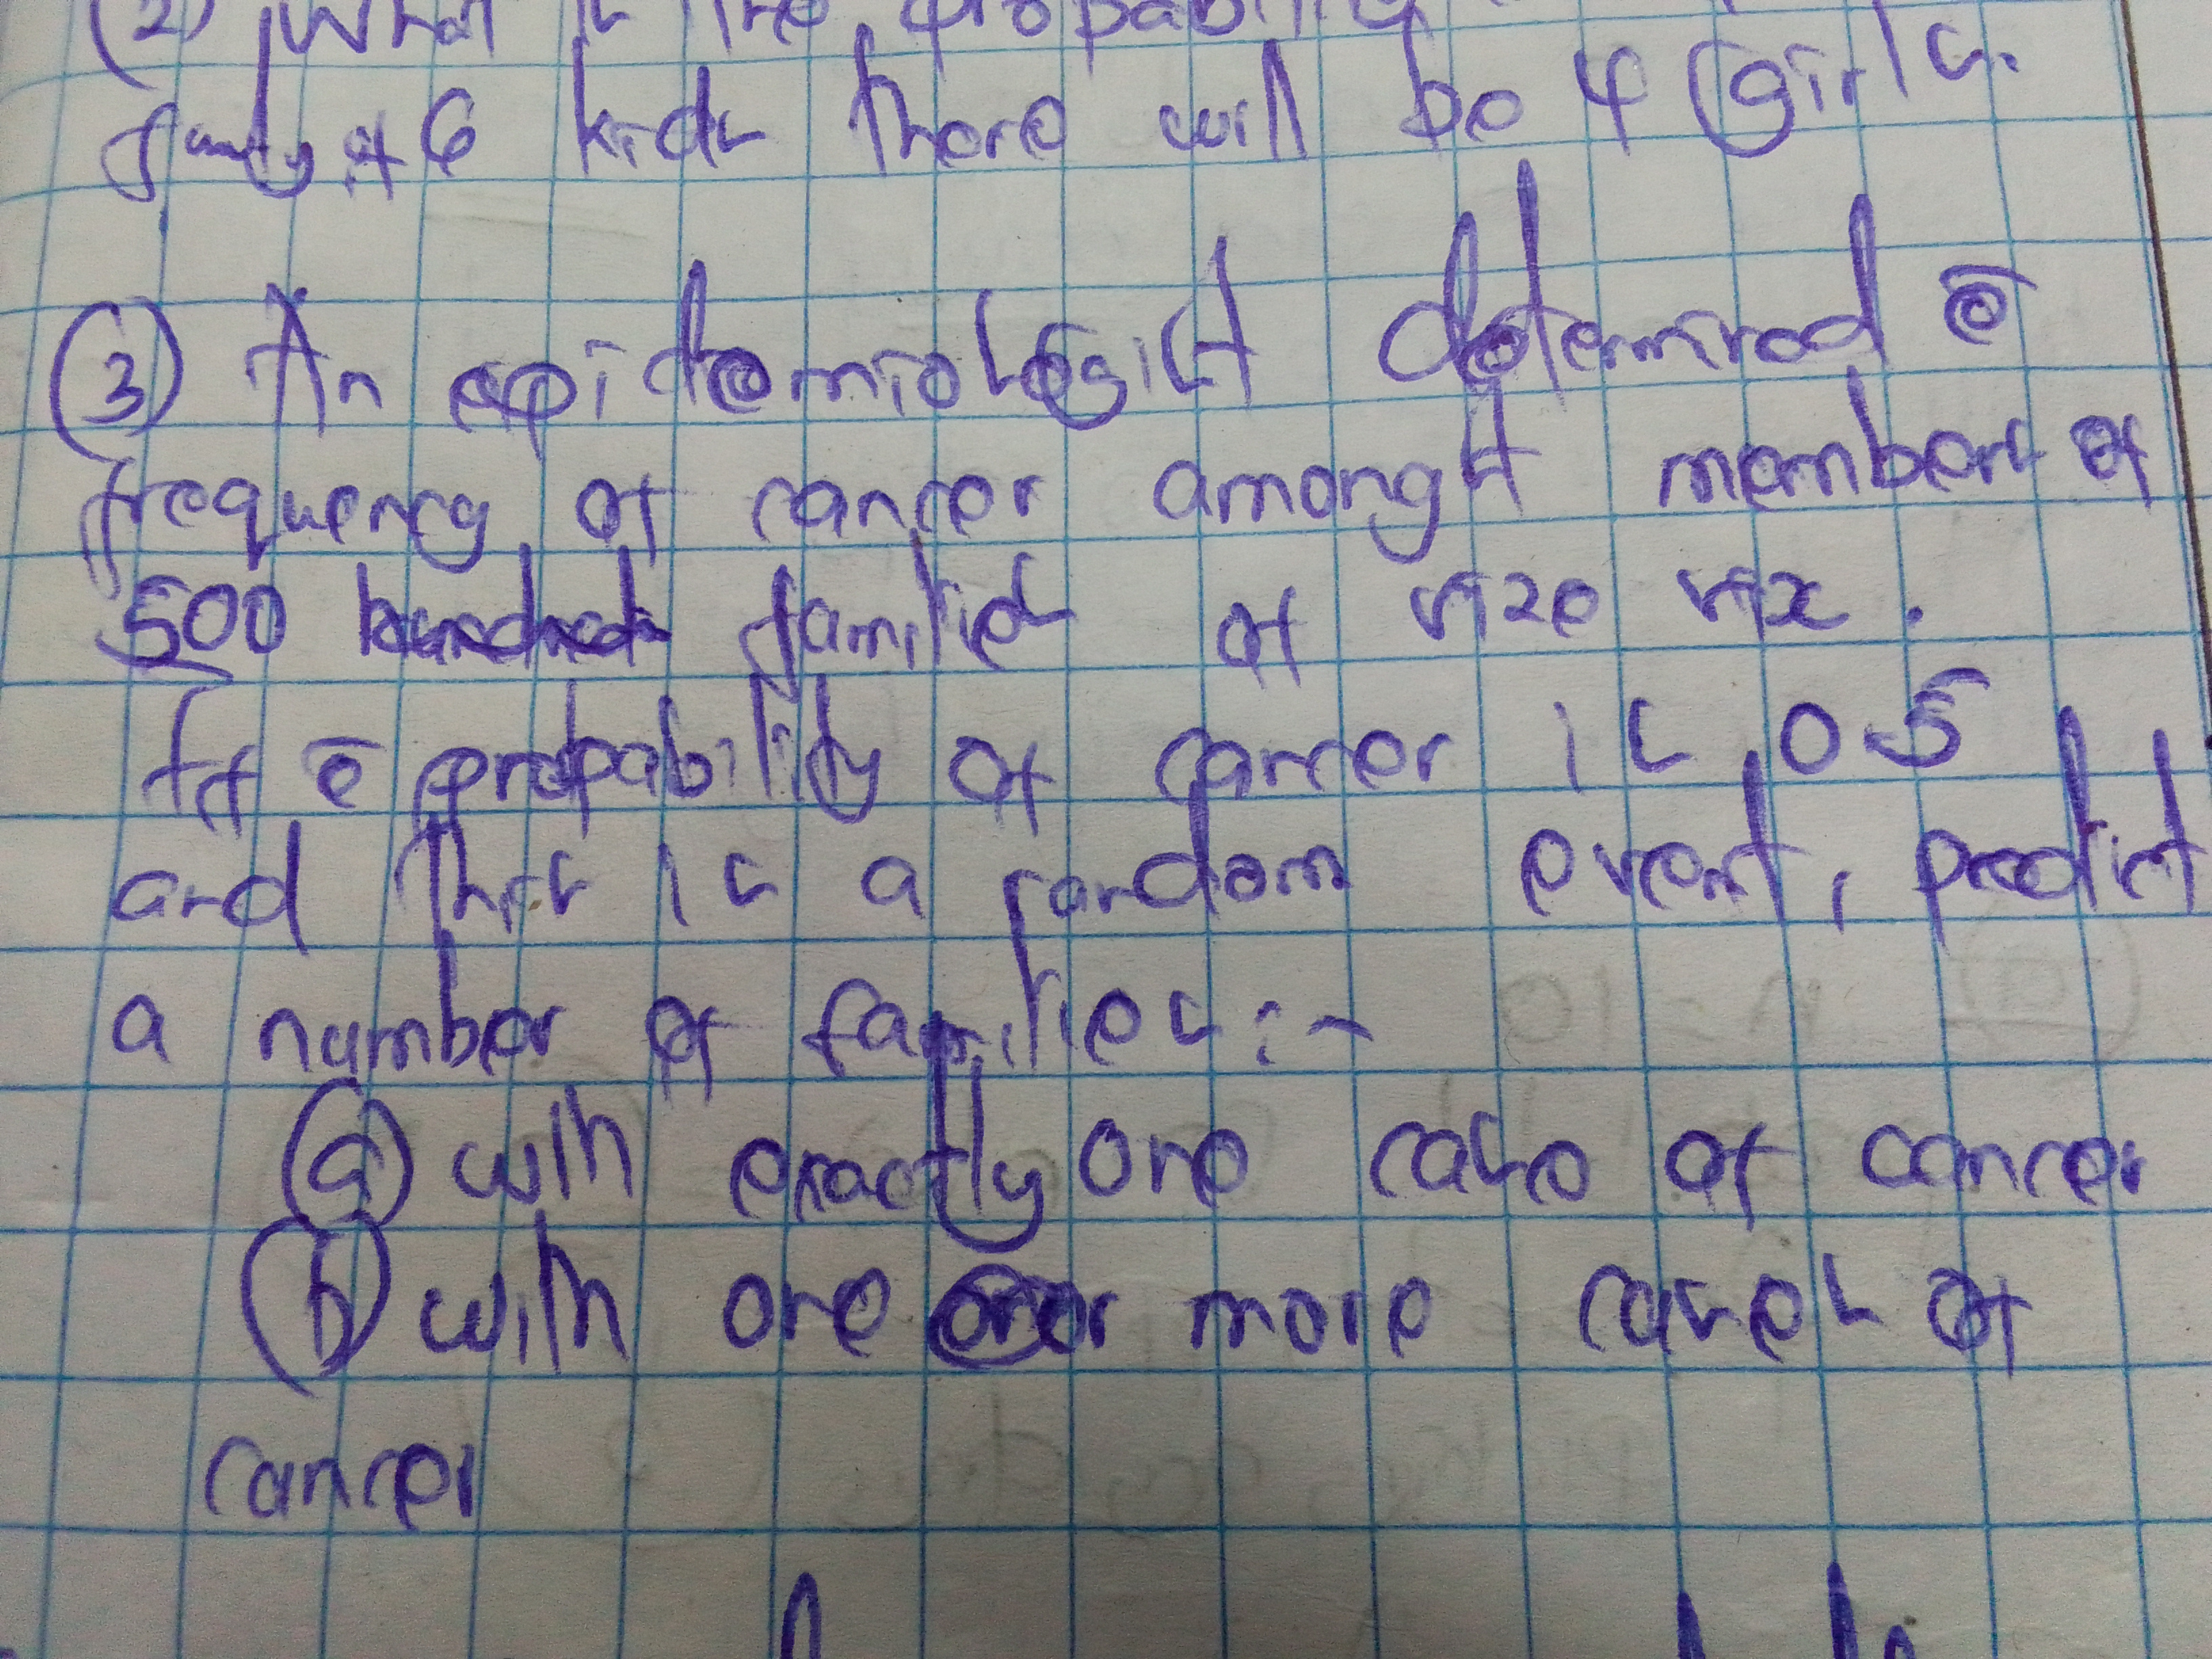 (2) What is the probability
family of 6 kids there will be 4 girls.
(3) An epidemiologist determined ē
frequency of cancer amongst members of
500 families of size six.
If ē probability of cancer is 0.5
and this is a random event, predict
a number of families:-
(a) with exactly one case of cancer
(b) with one or more cases of
cancer